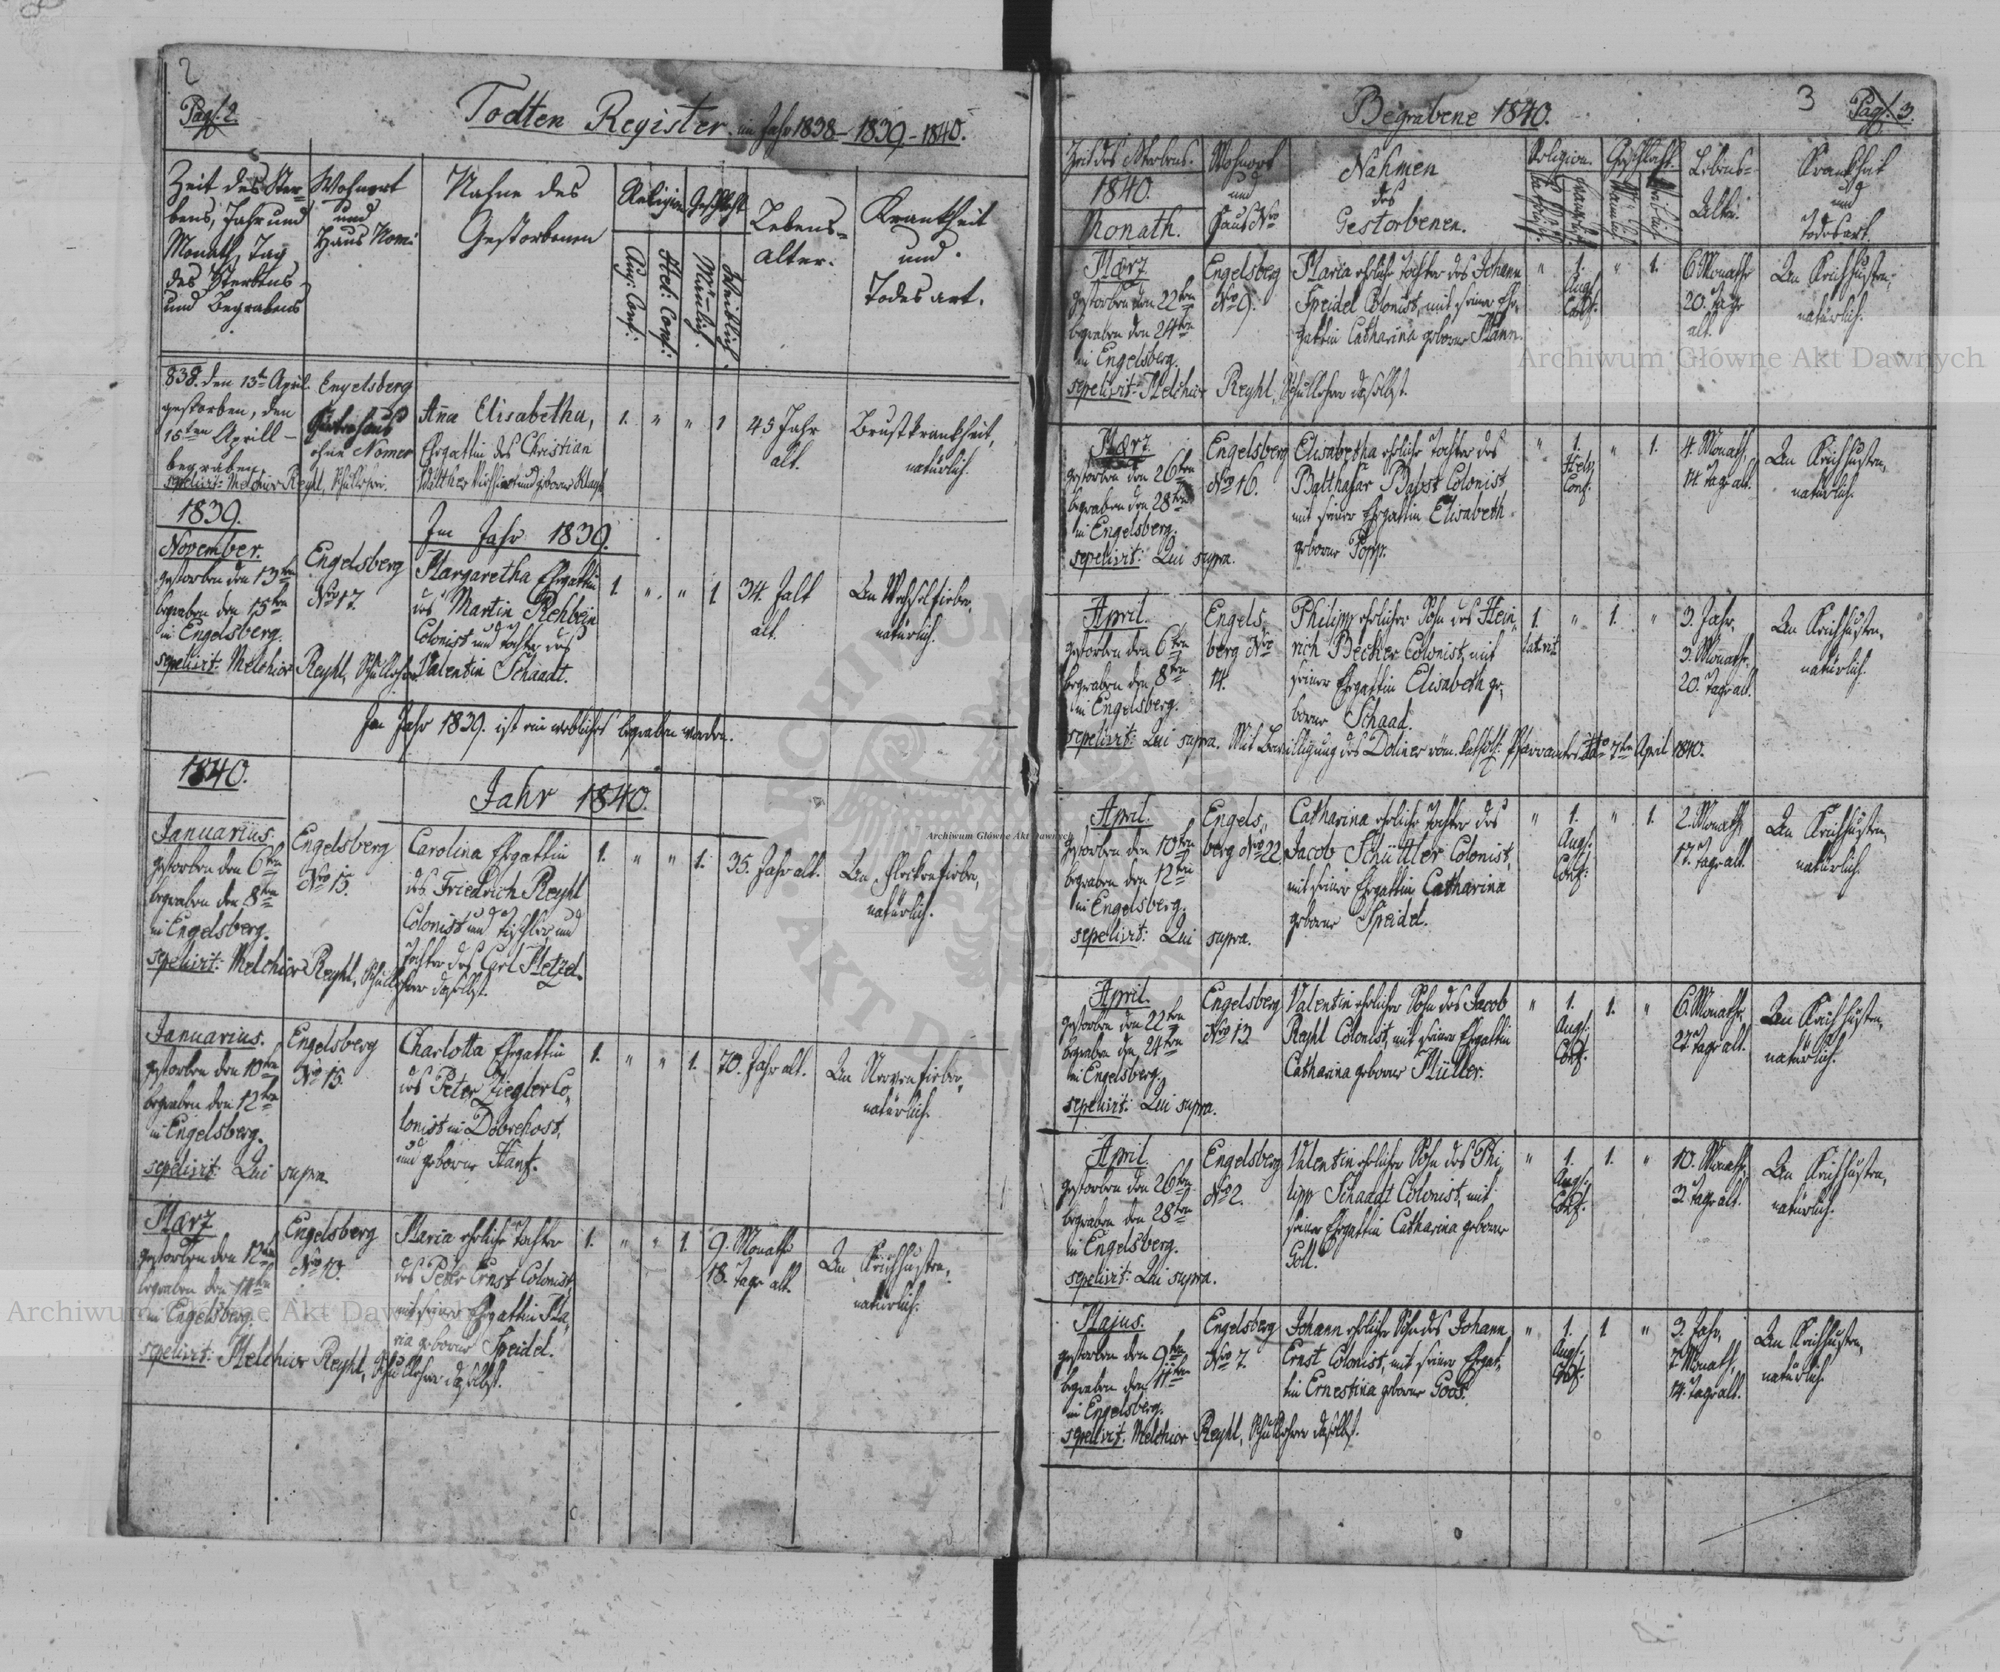 2
Pag. 2.
Todten Register im Jahr 1838 – 1839 – 1840.
Zeit des Ster-
bens, Jahr und
Monath, Tag
des Sterbens
und Begrabens
Wohnort
und
Haus Nomr:
Nahme des
Gestorbenen
Religion
Aug: Conf:
Hel: Conf:
Geschlecht
Mänlich.
Weiblich.
Lebens-
alter.
Krankheit
und
Todesart.
838. den 13ten April
gestorben, den
15ten Aprill –
begraben
sepelivit: Melchior Reyhl, Schullehrer.
Engelsberg
ohne Nomer
Aña Elisabetha,
Ehgattin des Christian
Walther und geborne
1. " " 1
45 Jahr
alt.
Brustkrankheit,
natürlich.
1839.
Im Jahr 1839.
November.
gestorben den 13ten
begraben den 15ten
in Engelsberg.
sepelivit: Melchior Reyhl, Schullehrer
Engelsberg
Nro 17.
Margaretha Ehgattin
des Martin Rehbein
Colonist und Tochter des
Valentin Schaadt.
1 " " 1
34 Jalt
alt.
An Wechselfieber,
natürlich.
Im Jahr 1839. ist ein weibliches begraben worden.
1840.
Jahr 1840.
Januarius.
gestorben den 6ten
begraben den 8ten
in Engelsberg.
sepelivit: Melchior Reyhl, Schullehrer daselbst.
Engelsberg
Nro 15.
Carolina Ehgattin
des Friedrich Reyhl
Colonist und Tischler und
Tochter des Carl Metzel.
1. " " 1.
35. Jahr alt.
An Fleckenfieber,
natürlich.
Januarius.
gestorben den 10ten
begraben den 12ten
in Engelsberg.
sepelivit: Qui supra.
Engelsberg
Nro 15.
Charlotta Ehgattin
des Peter Ziegler Co,
lonist in Dobrehost,
und geborne Hanf.
1. " " 1.
70. Jahr alt.
An Nervenfieber,
natürlich.
März
gestorben den 12ten
begraben den 14ten
in Engelsberg.
sepelivit: Melchior Reyhl, Schullehrer daselbst.
Engelsberg
Nro 10.
Maria ehrliche Tochter
des Peter Ernst Colonist,
mit seiner Ehgattin Ma,
ria geborne Speidel.
1. " " 1.
9. Monath
18. Tage alt.
An Keichhusten,
natürlich.
3
Pag. 3.
Begrabene 1840.
Zeit des Sterbens.
1840.
Monath.
Wohnort
und
Haus Nro
Nahmen
des
Gestorbenen.
Religion.
Geschlecht.
Lebens-
Alter.
Krankheit
und
Todesart.
März
gestorben den 22ten
begraben den 24ten
in Engelsberg.
sepelivit: Melchior Reyhl, Schullehrer daselbst.
Engelsberg
Nro 9.
Maria ehrliche Tochter des Johann
Speidel Colonist, mit seiner Ehe-
gattin Catharina geborne Mann.
" 1. " 1.
Augs.
Conf.
6. Monath
20. Tage
alt.
An Keichhusten,
natürlich.
März
gestorben den 26ten
begraben den 28ten
in Engelsberg.
sepelivit: Qui supra.
Engelsberg
Nro 16.
Elisabetha ehrliche Tochter des
Balthasar Babst Colonist
mit seiner Ehgattin Elisabeth
geborne Popp.
" 1. " 1.
Helv.
Conf.
4. Monath,
14 Tage alt.
An Keichhusten,
natürlich.
April.
gestorben den 6ten
begraben den 8ten
in Engelsberg.
sepelivit: Qui supra. Mit Bewilligung des Doliner röm. kathol: Pfarramtes dto 7ten April 1840.
Engels,
berg Nro
14.
Philipp ehrlicher Sohn des Hein,
rich Becker Colonist, mit
seiner Ehgattin Elisabeth ge,
borne Schaad.
1. " 1. "
lat. rit.
3. Jahr,
3. Monath,
20. Tage alt.
An Keichhusten,
natürlich.
April.
gestorben den 10ten
begraben den 12ten
in Engelsberg.
sepelivit: Qui supra.
Engels,
berg Nro 22.
Catharina ehrliche Tochter des
Jacob Schüttler Colonist,
mit seiner Ehgattin Catharina
geborne Speidel.
" 1. " 1.
Augs.
Conf:
2. Monath
17. Tage alt.
An Keichhusten,
natürlich.
April.
gestorben den 22ten
begraben den 24ten
in Engelsberg.
sepelivit: Qui supra.
Engelsberg
Nro 13.
Valentin ehrlicher Sohn des Jacob
Reyhl Colonist, mit seiner Ehgattin
Catharina geborne Müller.
" 1. 1. "
Augs.
Conf.
6. Monath,
27 Tage alt.
An Keichhusten,
natürlich.
April.
gestorben den 26ten
begraben den 28ten
in Engelsberg.
sepelivit: Qui supra.
Engelsberg
Nro 2.
Valentin ehrlicher Sohn des Phi,
lipp Schaadt Colonist, mit
seiner Ehgattin Catharina geborne
Goll.
" 1. 1. "
Augs.
Conf.
10. Monath,
3. Tage alt.
An Keichhusten,
natürlich.
Majus.
gestorben den 9ten
begraben den 11ten
in Engelsberg.
sepelivit: Melchior Reyhl, Schullehrer daselbst.
Engelsberg
Nro 7.
Johann ehrlicher Sohn des Johann
Ernst Colonist, mit seiner Ehgat,
tin Ernestina geborne Goos.
" 1. 1 "
Augs.
Conf.
3. Jahr,
7. Monath,
14. Tage alt.
An Keichhusten,
natürlich.
Archiwum Główne Akt Dawnych
Archiwum Główne Akt Dawnych
Archiwum Główne Akt Dawnych